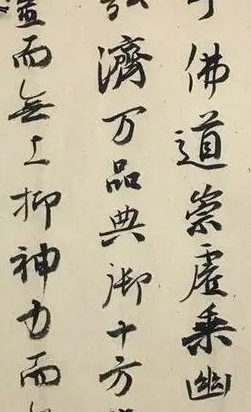 佛道崇虛乘幽
濟万品典御十方
而無上抑神力而